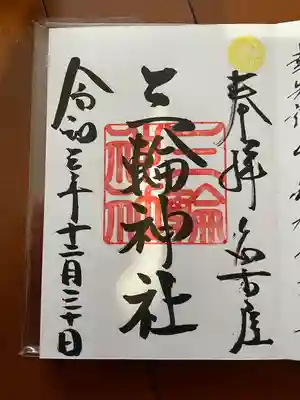 奉拝 名古屋
三輪神社
三輪神社
令和三年十二月二十日